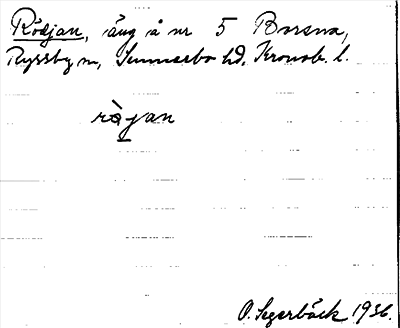 Rödjan, äng å nr 5 Borsna,
Ryssby sn, Sunnerbo hd, Kronob. l.
ràjan
O. Segerbäck 1936.